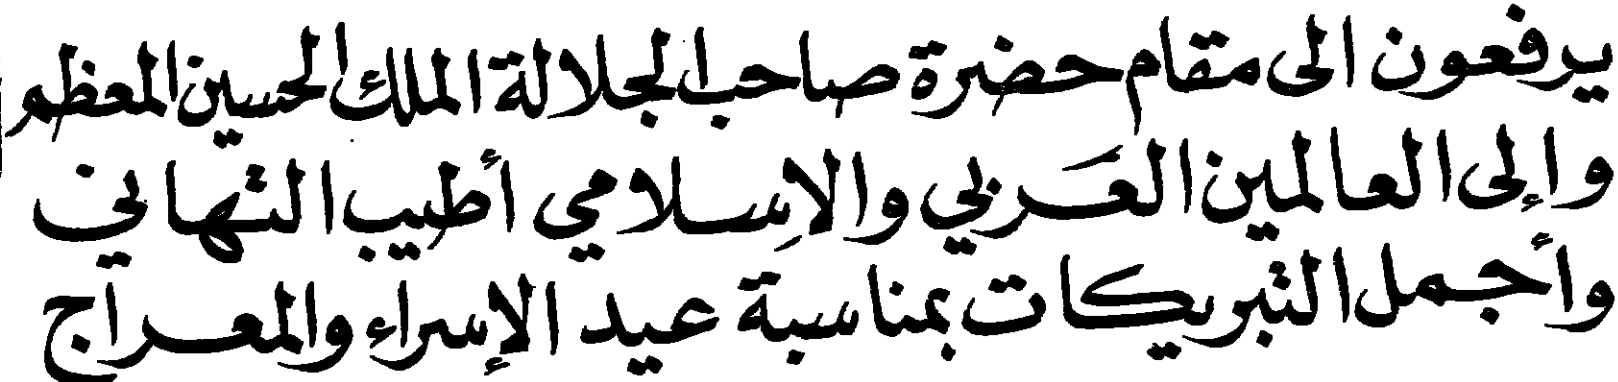 يرفعون الى مقام حضرة صاحب الجلالة الملك الحسين المعظم
وإلى العالمين العَربي والاِسلامي أطيب التهاني
وأجمل التبريكات بمناسبة عيد الإسراء والمعراج